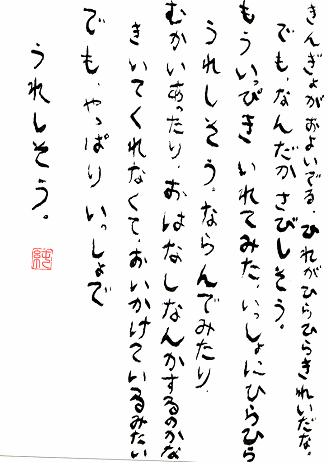 きんぎょがおよいでる。ひれがひらひらきれいだな。
でも、なんだかさびしそう。
もういっぴきいれてみた。いっしょにひらひら
うれしそう。ならんでみたり、
むかいあったり、おはなしなんかするのかな
きいてくれなくて、おいかけているみたい
でも、やっぱりいっしょで
うれしそう。
純